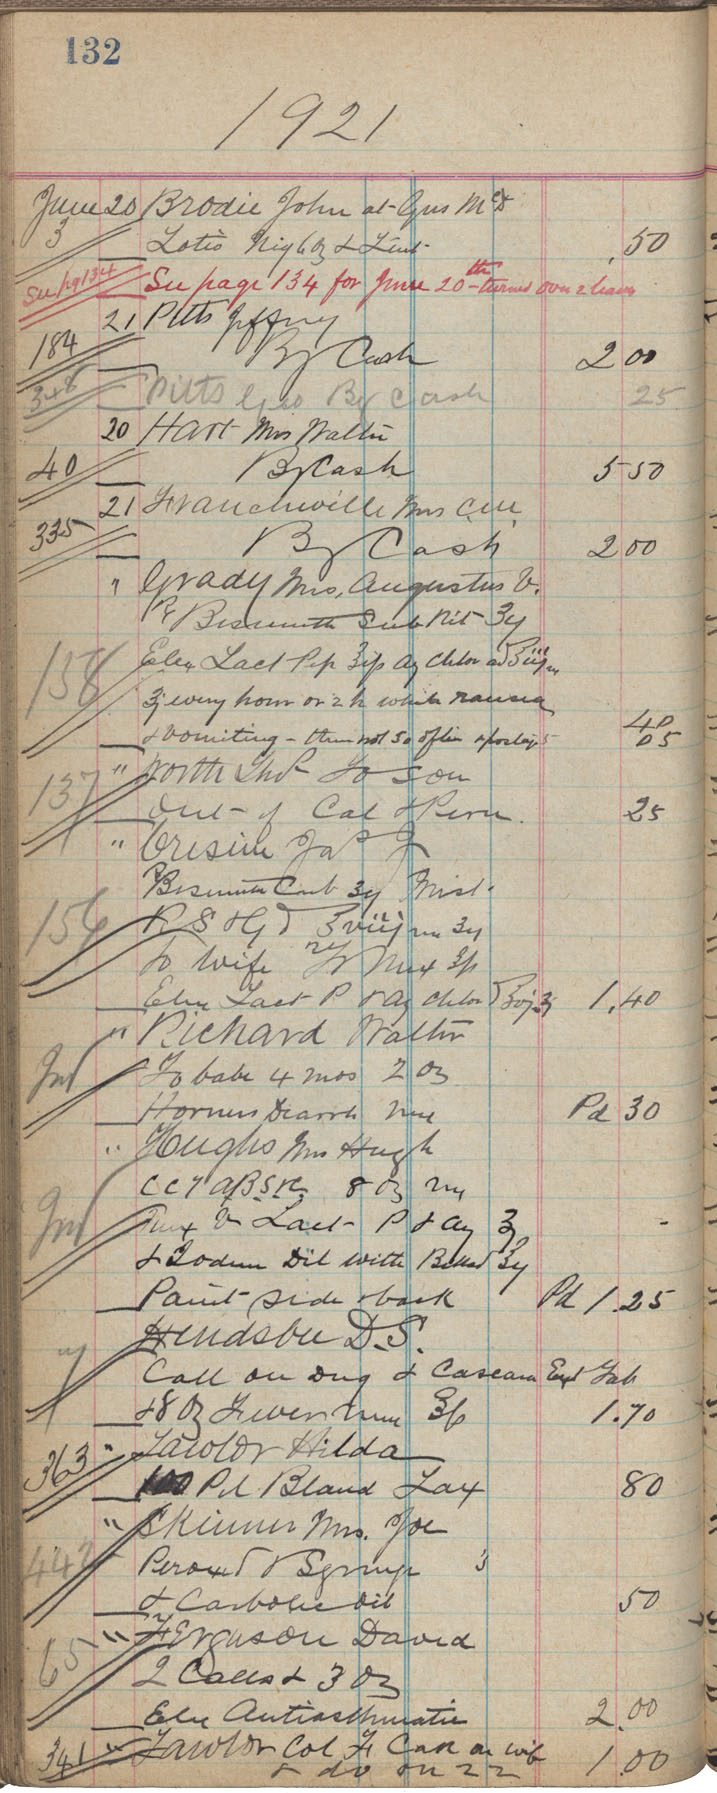 132
1921
June 20 Brodie John at Gus McD
3 Lotio Nig 6 oz & Lint .50
See pg 134 See page 134 for June 20th - turned over 2 leaves
21 Pitts Jeffrey
184 By Cash 2 00
348 Pitts Geo By Cash 25
20 Hart Mrs Walter
40 By Cash 5 50
21 Francheville Mrs C.W.
335 By Cash 2 00
" Grady Mrs. Augustus V.
Bismuth Sub Nit ʒij
158 Elix Lact Pep ad
every hour or 2 h while nausea
& vomiting - then not so often & postage 5
" North
137 of Cal & 25
" Cresine Jas J
Bismuth Carb ʒij Mist.
156 R S & G
to wife Nux
Elix Lact P & Aq Chlor 1.40
" Richard Walter
To babe 4 mos 2 oz
Horners Diarrh Pd 30
" Hughs Mrs Hugh
8 oz
Lact P & Aq -
& Iodum Dil with
Paint side & back Pd 1.25
Hendsbee D.S.
Call on Dug & Cascara Ext Tab
7 & 8 oz Fever 1.70
363 " Lawlor Hilda
100 Pil Blaud Lax 80
" Skinner Mrs. Joe
442 Peroxd & Syringe
& Carbolic Dil 50
65 " Ferguson David
2 Calls & 3 oz
Elix Antiasthmatic 2.00
341 " Lawlor Col F Call on wife 1.00
& do on 22